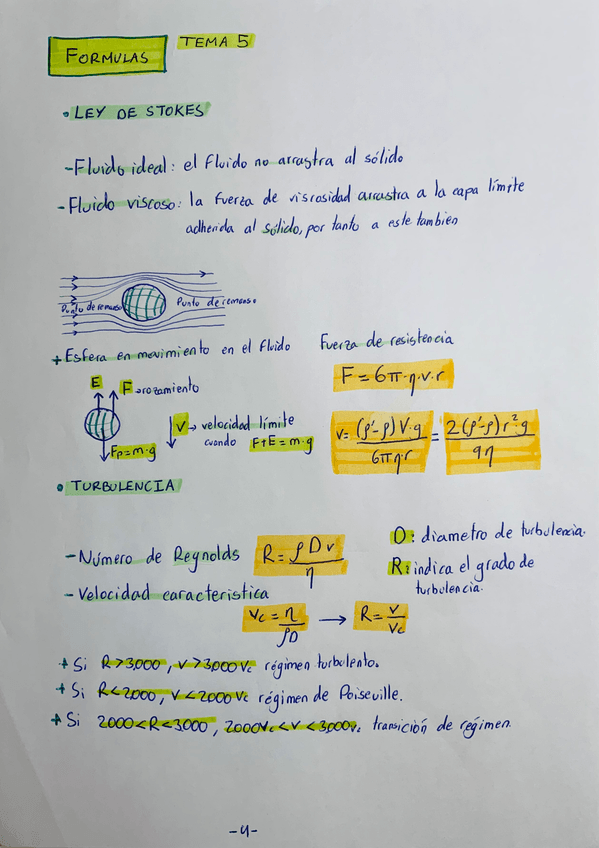 FORMULAS
TEMA 5
• LEY DE STOKES
- Fluido ideal: el fluido no arrastra al sólido
- Fluido viscoso: la fuerza de viscosidad arrastra a la capa límite
adherida al sólido, por tanto a este tambien
Punto de remanso Punto de remanso
+ Esfera en movimiento en el fluido
Fuerza de resistencia
F = 6π·η·v·r
E
F → rozamiento
V → velocidad límite
cuando F+E = m·g
Fp = m·g
v = (ρ'-ρ) V·g / 6π η·r = 2(ρ'-ρ) r²·g / 9η
• TURBULENCIA
- Número de Reynolds R = ρ D v / η
D: diametro de turbulencia.
R: indica el grado de
turbulencia.
- Velocidad caracteristica
Vc = η / ρD → R = v / vc
+ Si R > 3,000, v > 3,000 Vc régimen turbulento.
+ Si R < 2000, v < 2000 Vc régimen de Poiseville.
+ Si 2000 < R < 3000, 2000Vc < v < 3,000Vc transición de régimen.
-4-